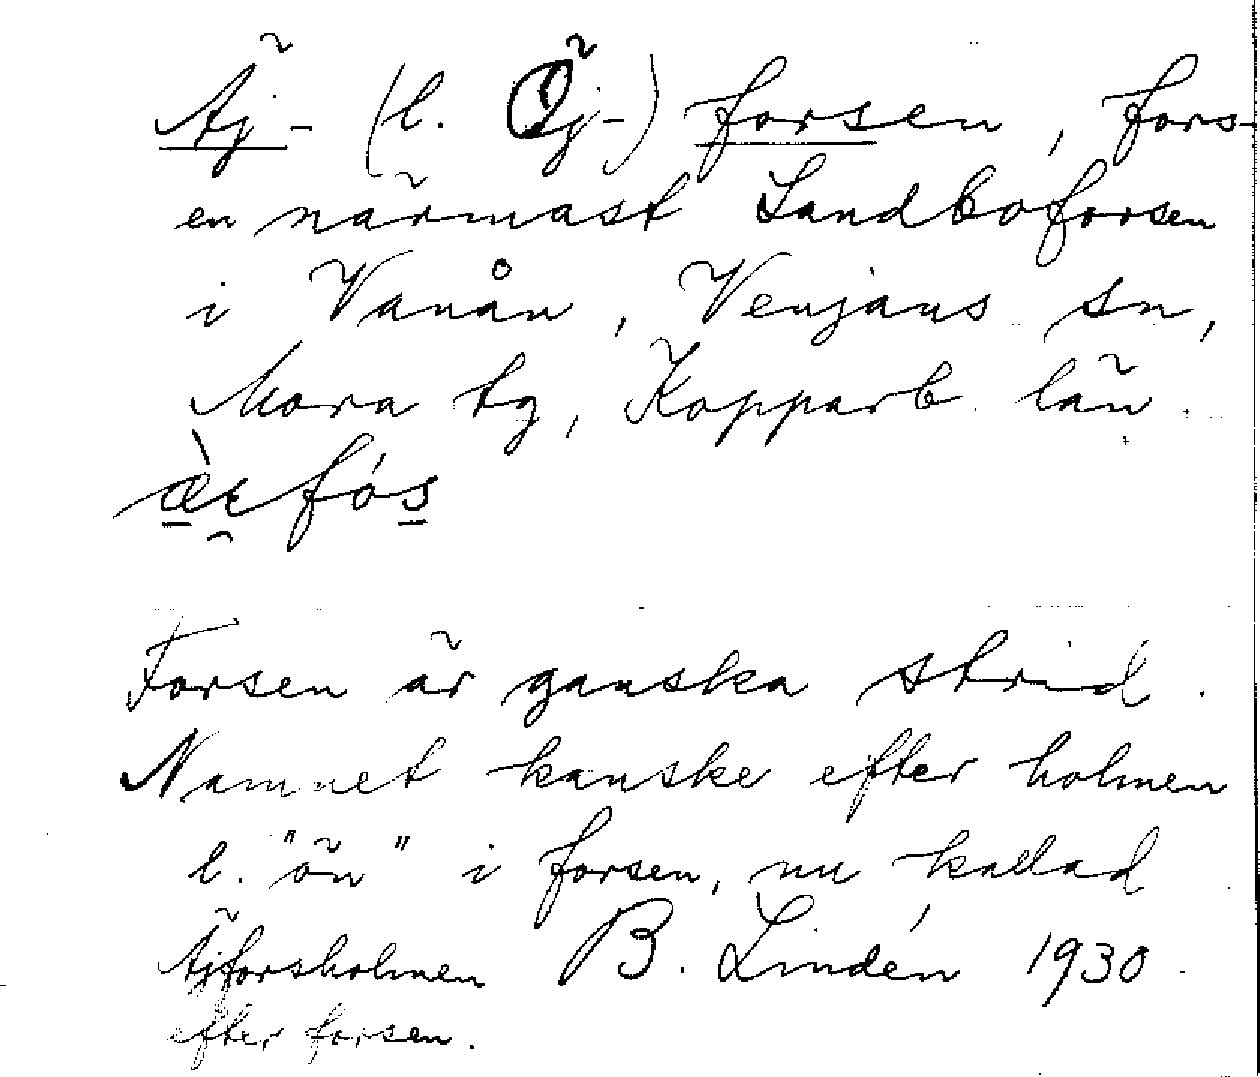 Äj- (l. Öj-) forsen, fors-
en närmast Landboforsen
i Vanån, Venjans sn,
Mora tg, Kopparb. län.
Forsen är ganska strid.
Namnet kanske efter holmen
l. "ön" i forsen, nu kallad
Äjforsholmen B. Lindén 1930.
efter forsen.